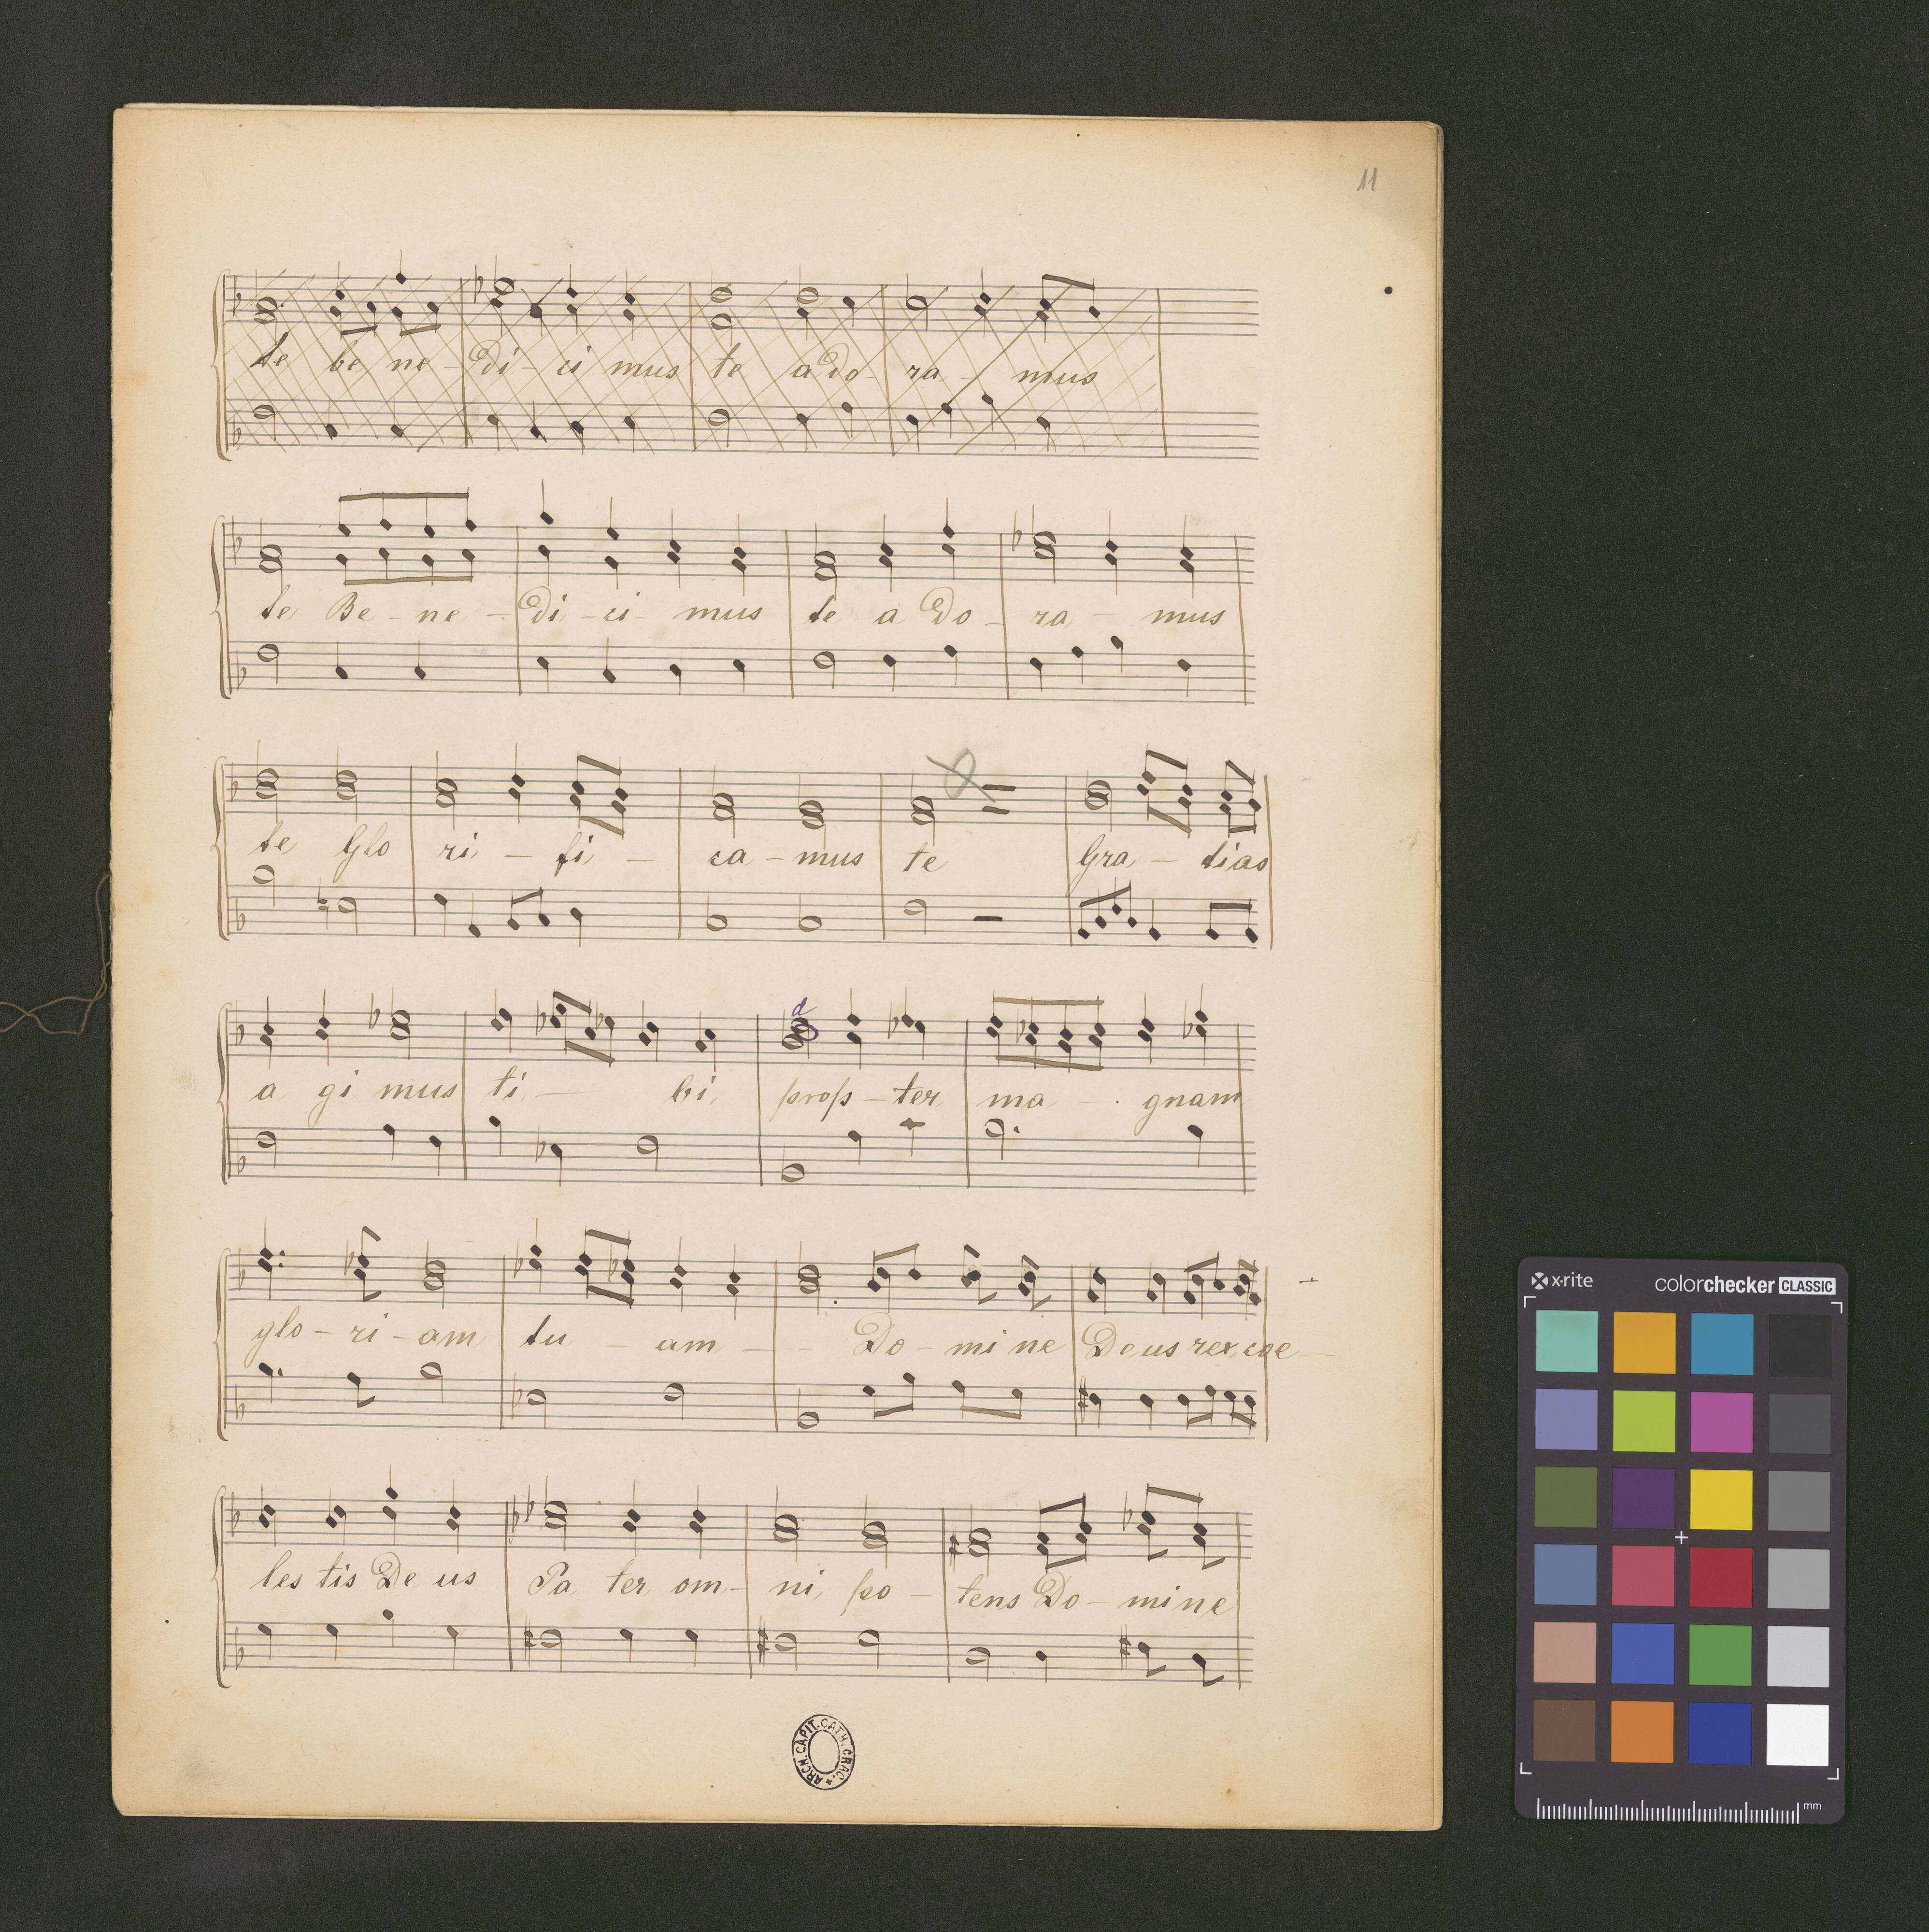 11
te be ne - di - ci mus te a do - ra - mus
te Be - ne - di - ci - mus te a do - ra - mus
te Glo ri - fi - ca - mus te Gra - tias
d
a gi mus ti - bi prop - ter ma - gnam
glo - ri - am tu - am - - Do - mi ne Deus rex coe -
les tis De us Pa ter om - ni po - tens Do - mi ne
ARCH. CAPIT. CATH. CRAC.
x·rite colorchecker CLASSIC
mm